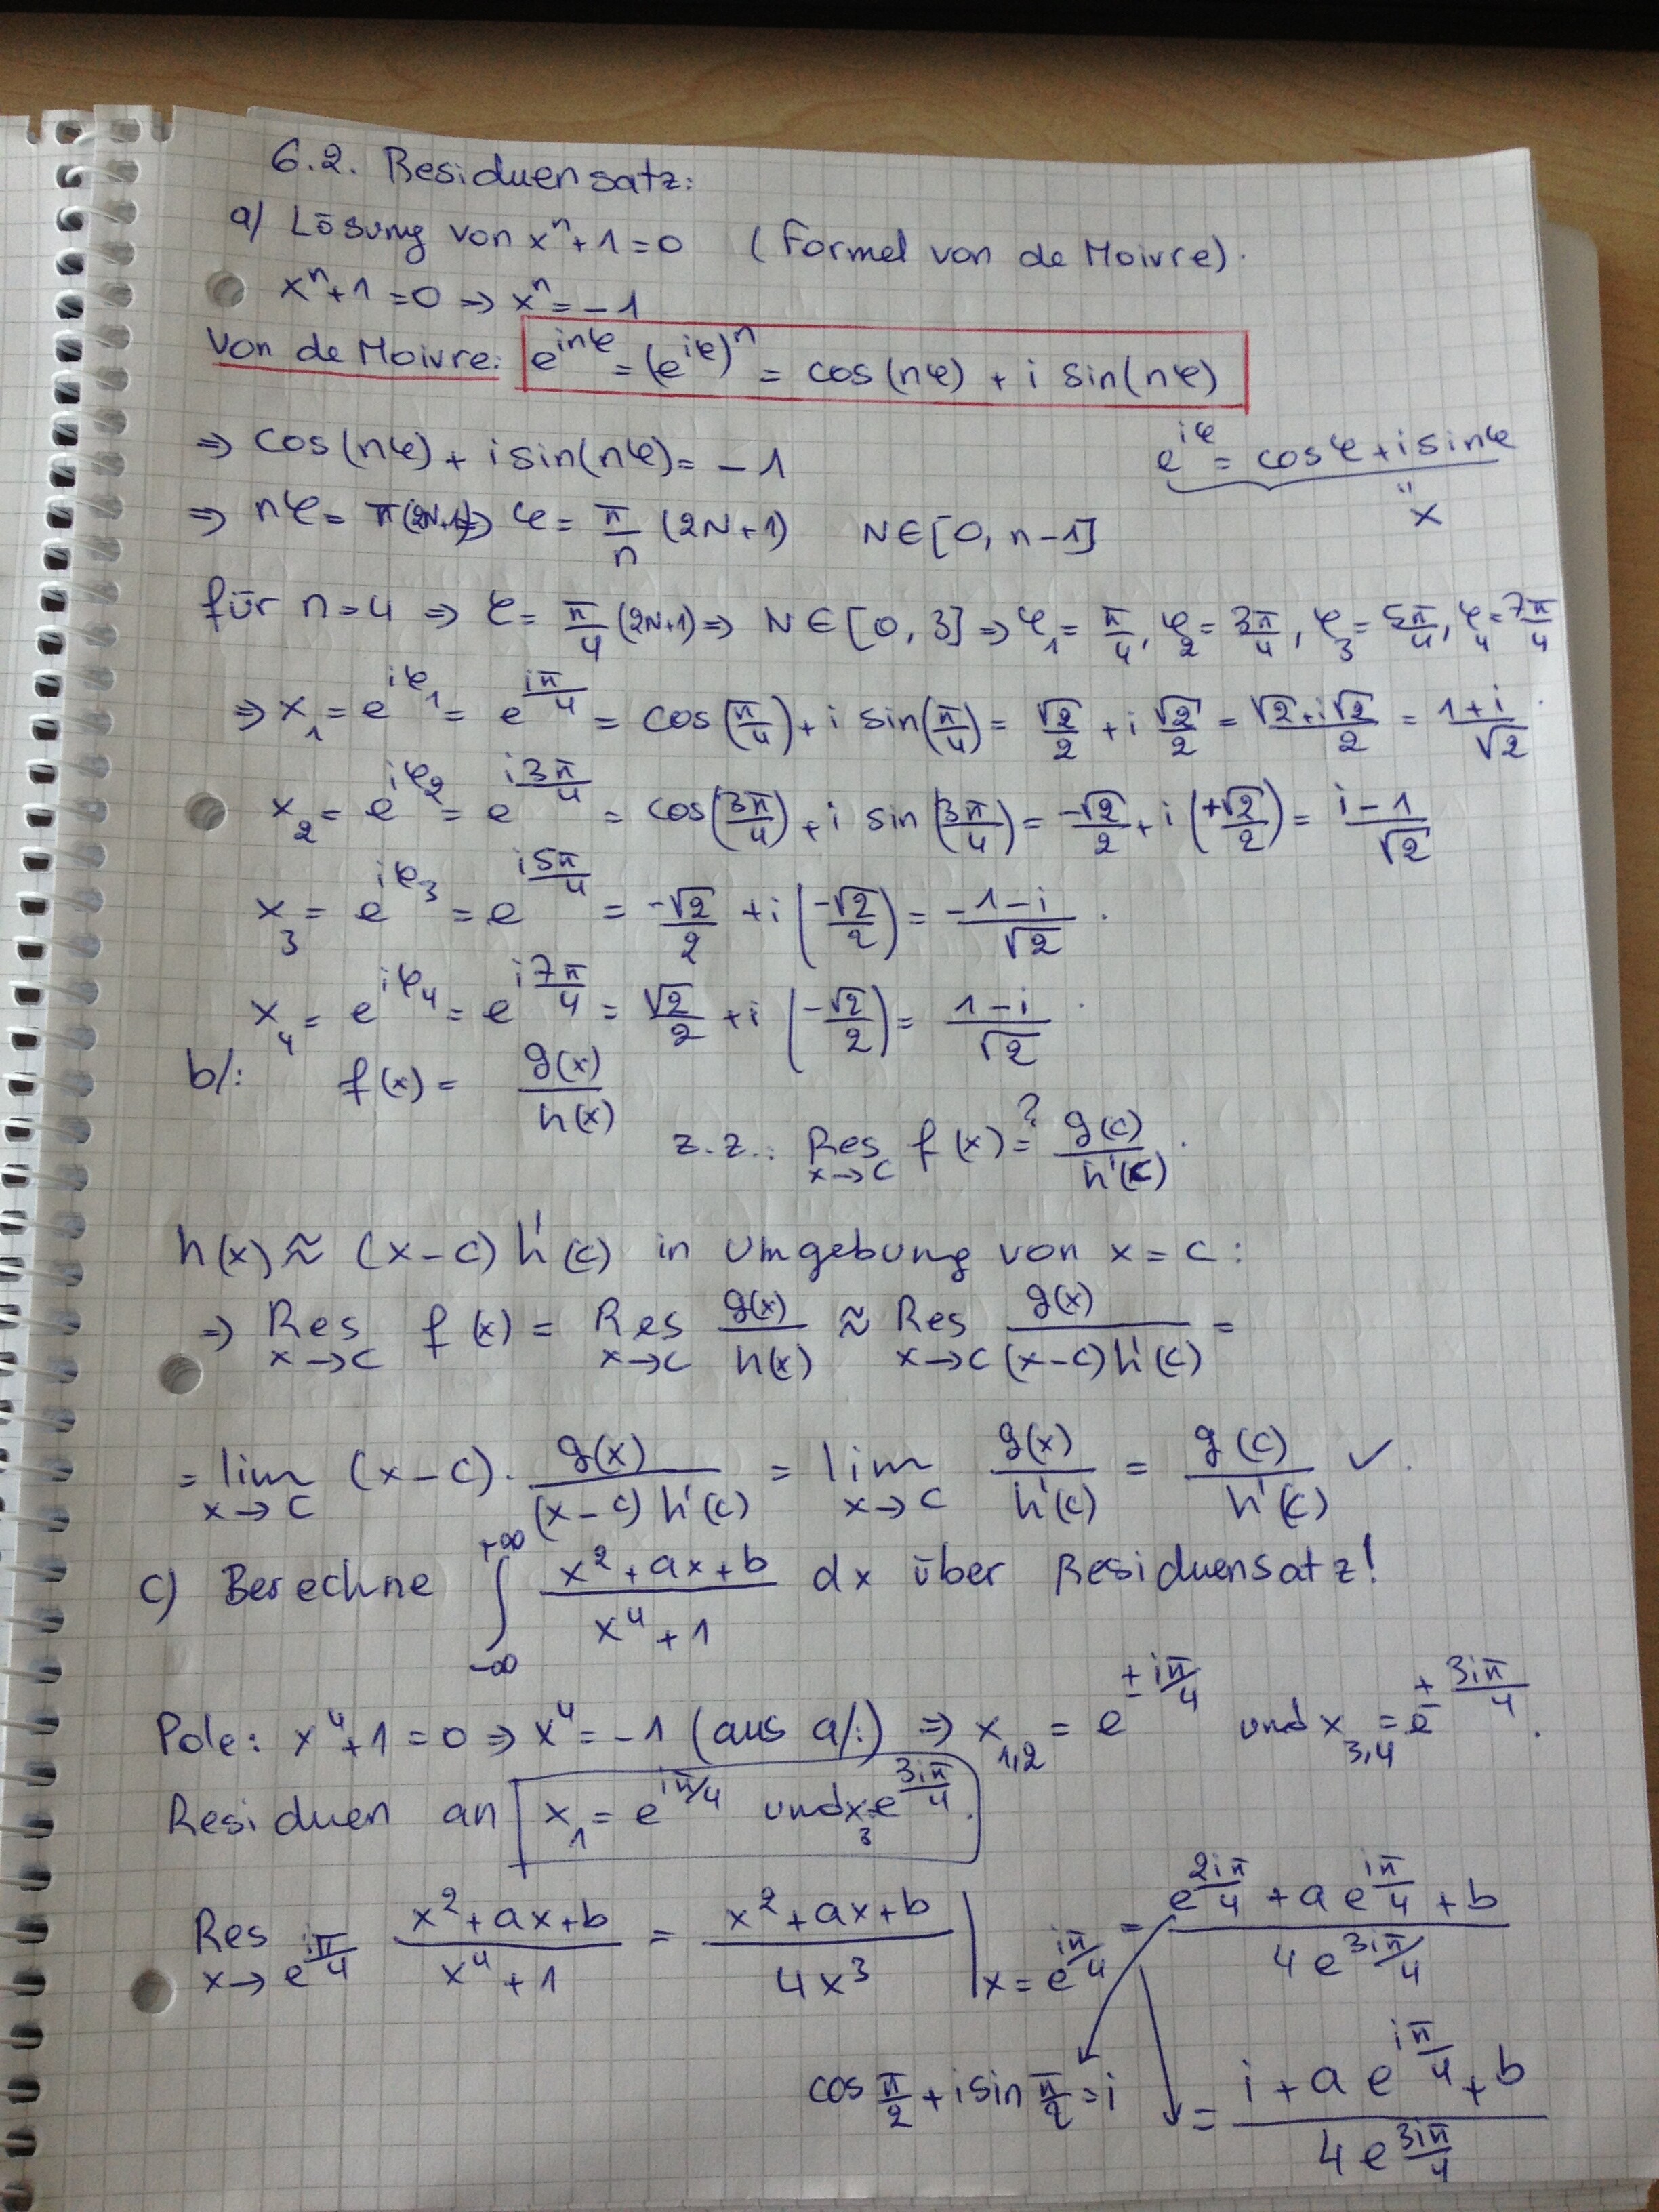 6.2. Residuensatz:
a) Lösung von xⁿ+1=0 (Formel von de Moivre).
xⁿ+1=0 ⇒ xⁿ=-1
Von de Moivre: e^{inφ} = (e^{iφ})ⁿ = cos(nφ) + i sin(nφ)
⇒ cos(nφ) + i sin(nφ) = -1
e^{iφ} = cosφ + i sinφ
" x
⇒ nφ = π(2N+1) ⇒ φ = π/n (2N+1) N∈[0, n-1]
für n=4 ⇒ φ = π/4 (2N+1) ⇒ N∈[0,3] ⇒ φ₁ = π/4, φ₂ = 3π/4, φ₃ = 5π/4, φ₄ = 7π/4
⇒ x₁ = e^{iφ₁} = e^{iπ/4} = cos(π/4) + i sin(π/4) = √2/2 + i √2/2 = (√2+i√2)/2 = (1+i)/√2.
x₂ = e^{iφ₂} = e^{i3π/4} = cos(3π/4) + i sin(3π/4) = -√2/2 + i (+√2/2) = (i-1)/√2
x₃ = e^{iφ₃} = e^{i5π/4} = -√2/2 + i (-√2/2) = (-1-i)/√2.
x₄ = e^{iφ₄} = e^{i7π/4} = √2/2 + i (-√2/2) = (1-i)/√2.
b/: f(x) = g(x)/h(x)
z.z.: Res_{x→c} f(x) =? g(c)/h'(c).
h(x) ≈ (x-c) h'(c) in Umgebung von x = c:
⇒ Res_{x→c} f(x) = Res_{x→c} g(x)/h(x) ≈ Res_{x→c} g(x)/((x-c)h'(c)) =
= lim_{x→c} (x-c)· g(x)/((x-c)h'(c)) = lim_{x→c} g(x)/h'(c) = g(c)/h'(c) ✓.
c) Berechne ∫_{-∞}^{+∞} (x²+ax+b)/(x⁴+1) dx über Residuensatz!
Pole: x⁴+1=0 ⇒ x⁴=-1 (aus a/:) ⇒ x_{1,2} = e^{±iπ/4} und x_{3,4} = e^{±3iπ/4}.
Residuen an x₁ = e^{iπ/4} und x₃ = e^{3iπ/4}.
Res_{x→e^{iπ/4}} (x²+ax+b)/(x⁴+1) = (x²+ax+b)/(4x³) |_{x=e^{iπ/4}} = (e^{2iπ/4} + a e^{iπ/4} + b)/(4e^{3iπ/4})
cos π/2 + i sin π/2 = i = (i + a e^{iπ/4} + b)/(4e^{3iπ/4})